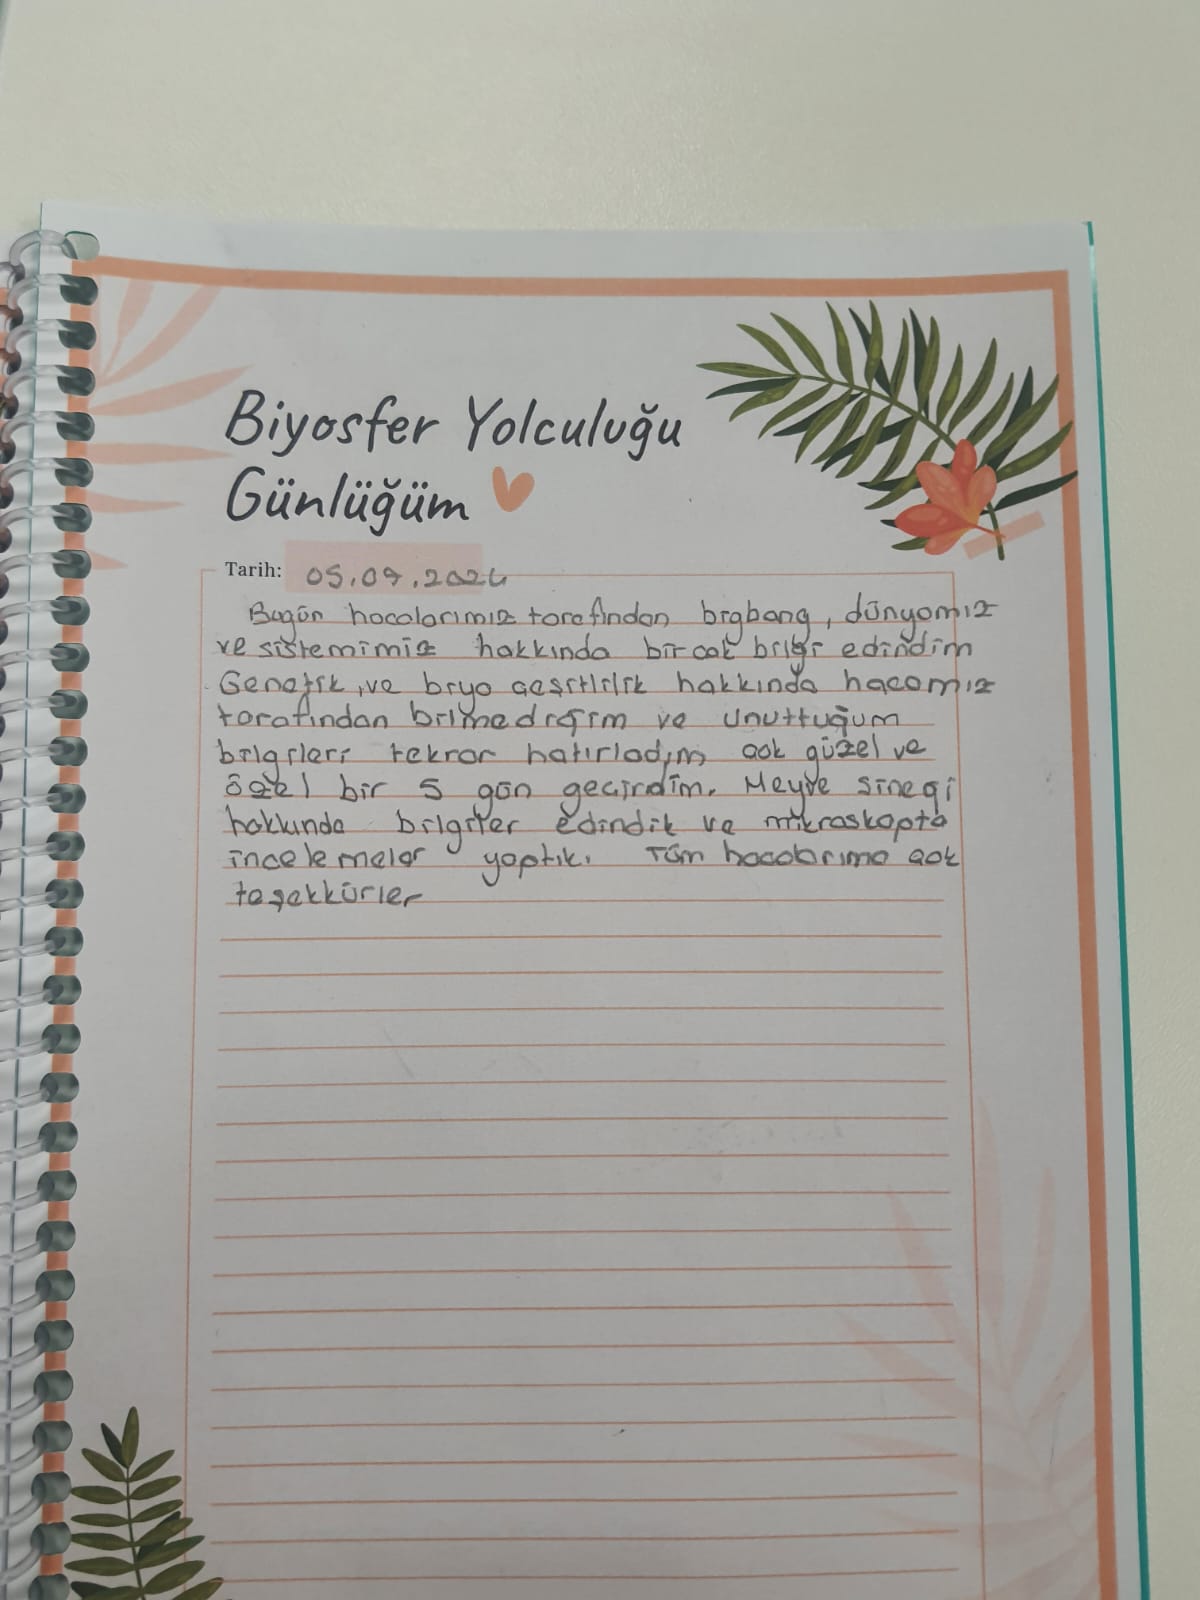 Biyosfer Yolculuğu
Günlüğüm
Tarih: 05.09.2024
Bugün hocalarımız tarafından bigbang, dünyamız
ve sistemimiz hakkında bir çok bilgi edindim
Genetik, ve biyo çeşitlilik hakkında hocamız
tarafından bilmediğim ve unuttuğum
bilgileri tekrar hatırladım çok güzel ve
özel bir 5 gün geçirdim. Meyve sineği
hakkında bilgiler edindik ve mikroskopta
incelemeler yaptık. Tüm hocalarıma çok
teşekkürler